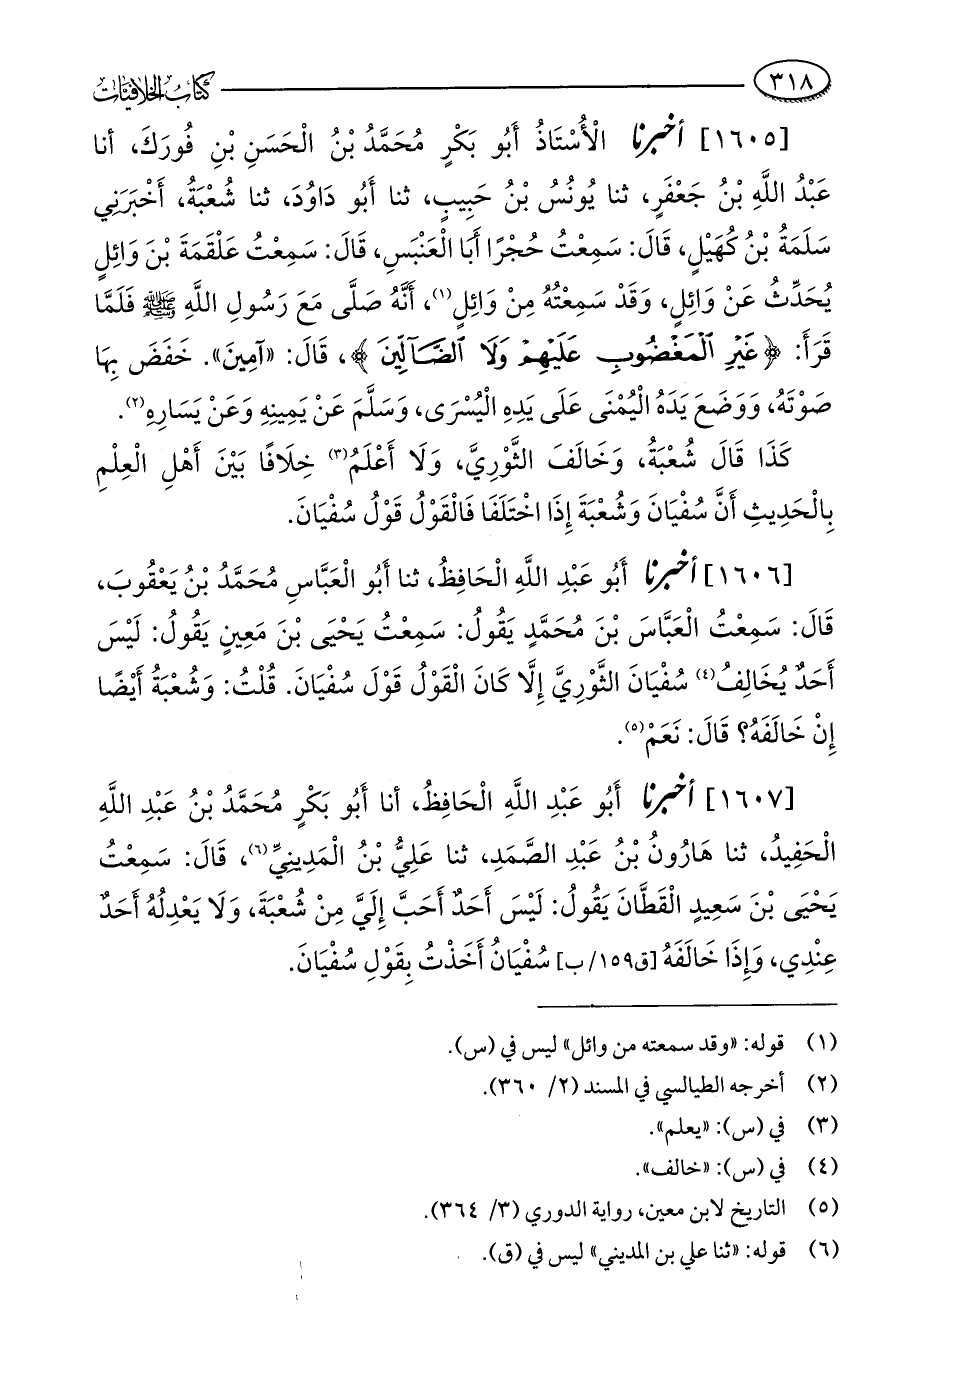 ٣١٨ كتاب الخلافيات
[١٦٠٥] أخبرنا الْأُسْتَاذُ أَبُو بَكْرٍ مُحَمَّدُ بْنُ الْحَسَنِ بْنِ فُورَكَ، أنا
عَبْدُ اللَّهِ بْنُ جَعْفَرٍ، ثنا يُونُسُ بْنُ حَبِيبٍ، ثنا أَبُو دَاوُدَ، ثنا شُعْبَةُ، أَخْبَرَنِي
سَلَمَةُ بْنُ كُهَيْلٍ، قَالَ: سَمِعْتُ حُجْرًا أَبَا الْعَنْبَسِ، قَالَ: سَمِعْتُ عَلْقَمَةَ بْنَ وَائِلٍ
يُحَدِّثُ عَنْ وَائِلٍ، وَقَدْ سَمِعْتُهُ مِنْ وَائِلٍ(١)، أَنَّهُ صَلَّى مَعَ رَسُولِ اللَّهِ ﷺ فَلَمَّا
قَرَأَ: ﴿غَيْرِ الْمَغْضُوبِ عَلَيْهِمْ وَلَا الضَّآلِّينَ﴾، قَالَ: «آمِينَ». خَفَضَ بِهَا
صَوْتَهُ، وَوَضَعَ يَدَهُ الْيُمْنَى عَلَى يَدِهِ الْيُسْرَى، وَسَلَّمَ عَنْ يَمِينِهِ وَعَنْ يَسَارِهِ(٢).
كَذَا قَالَ شُعْبَةُ، وَخَالَفَ الثَّوْرِيَّ، وَلَا أَعْلَمُ(٣) خِلَافًا بَيْنَ أَهْلِ الْعِلْمِ
بِالْحَدِيثِ أَنَّ سُفْيَانَ وَشُعْبَةَ إِذَا اخْتَلَفَا فَالْقَوْلُ قَوْلُ سُفْيَانَ.
[١٦٠٦] أخبرنا أَبُو عَبْدِ اللَّهِ الْحَافِظُ، ثنا أَبُو الْعَبَّاسِ مُحَمَّدُ بْنُ يَعْقُوبَ،
قَالَ: سَمِعْتُ الْعَبَّاسَ بْنَ مُحَمَّدٍ يَقُولُ: سَمِعْتُ يَحْيَى بْنَ مَعِينٍ يَقُولُ: لَيْسَ
أَحَدٌ يُخَالِفُ(٤) سُفْيَانَ الثَّوْرِيَّ إِلَّا كَانَ الْقَوْلُ قَوْلَ سُفْيَانَ. قُلْتُ: وَشُعْبَةُ أَيْضًا
إِنْ خَالَفَهُ؟ قَالَ: نَعَمْ(٥).
[١٦٠٧] أخبرنا أَبُو عَبْدِ اللَّهِ الْحَافِظُ، أنا أَبُو بَكْرٍ مُحَمَّدُ بْنُ عَبْدِ اللَّهِ
الْحَفِيدُ، ثنا هَارُونُ بْنُ عَبْدِ الصَّمَدِ، ثنا عَلِيُّ بْنُ الْمَدِينِيِّ(٦)، قَالَ: سَمِعْتُ
يَحْيَى بْنَ سَعِيدٍ الْقَطَّانَ يَقُولُ: لَيْسَ أَحَدٌ أَحَبَّ إِلَيَّ مِنْ شُعْبَةَ، وَلَا يَعْدِلُهُ أَحَدٌ
عِنْدِي، وَإِذَا خَالَفَهُ [ق١٥٩/ب] سُفْيَانُ أَخَذْتُ بِقَوْلِ سُفْيَانَ.
(١) قوله: «وقد سمعته من وائل» ليس في (س).
(٢) أخرجه الطيالسي في المسند (٢/ ٣٦٠).
(٣) في (س): «يعلم».
(٤) في (س): «خالف».
(٥) التاريخ لابن معين، رواية الدوري (٣/ ٣٦٤).
(٦) قوله: «ثنا علي بن المديني» ليس في (ق).